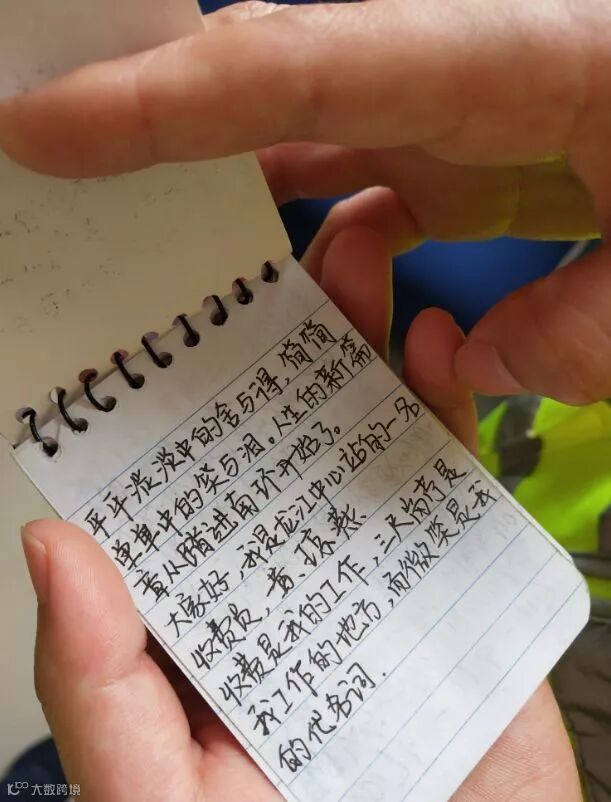 平平淡淡中的舍与得,简简
单单中的笑与泪。人生的新篇
章从踏进南环开始了。
大家好,我是龙江中心站的一名
收费员,黄琼燕
收费是我的工作,三尺岗亭是
我工作的地方,而微笑是我
的代名词.
大数跨境